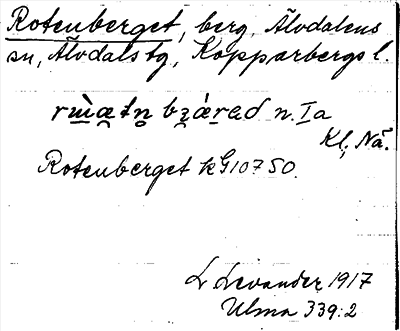 Rotenberget, berg, Älvdalens
sn, Älvdals tg, Kopparbergs l.
n. Ia
Kl, Nä.
Rotenberget kG10750.
L Levander 1917
Ulma 339:2